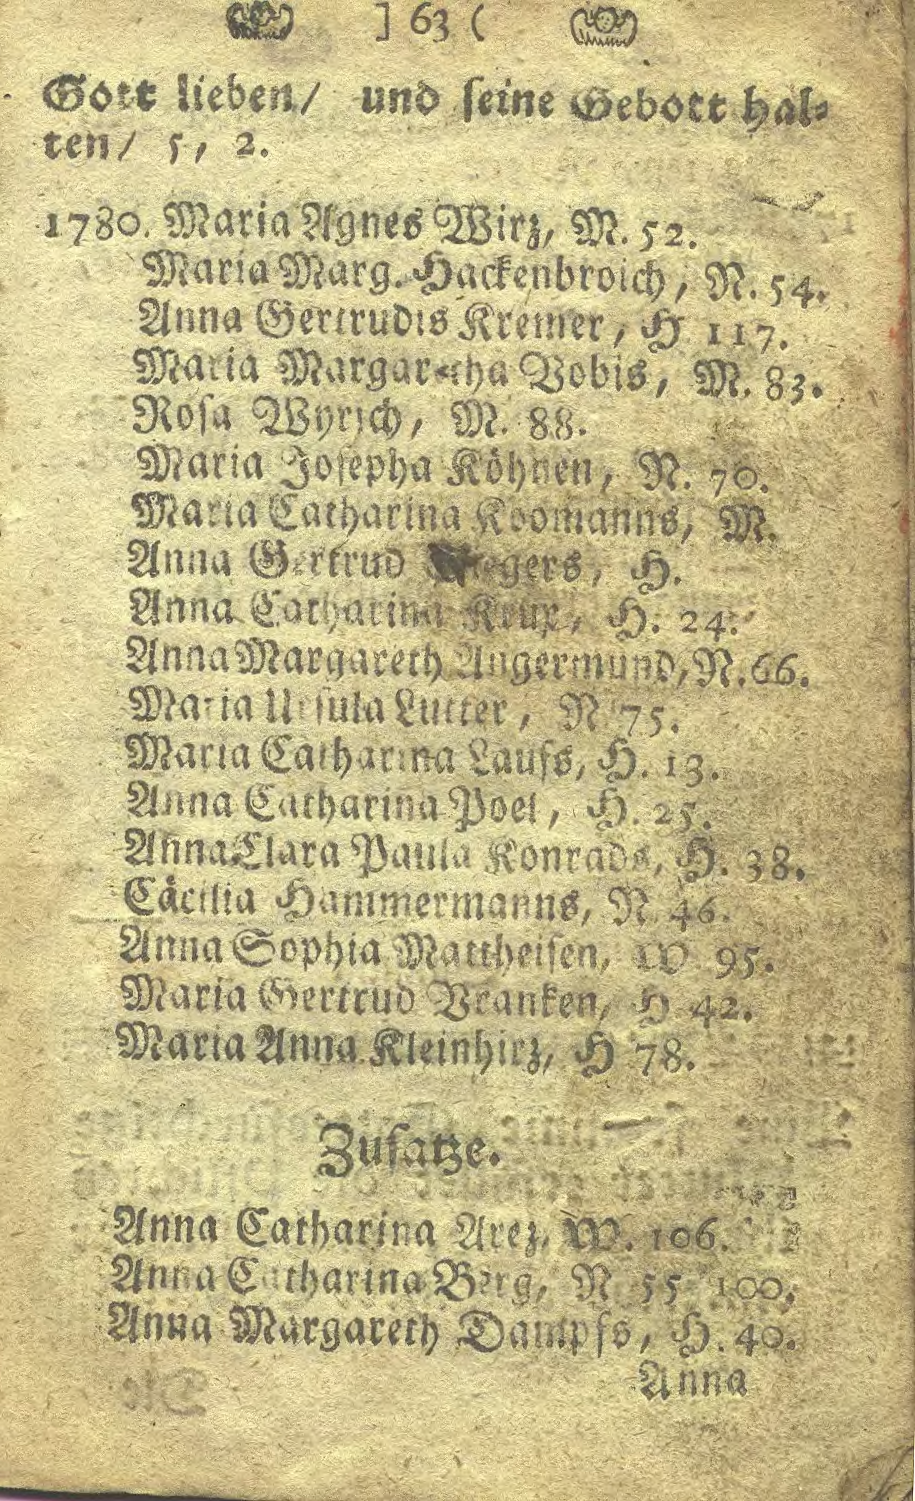 ] 63 (
Gott lieben/ und seine Gebott hal-
ten/ 5, 2.
1780. Maria Agnes Wirz, M. 52.
Maria Marg. Hackenbroich, N. 54.
Anna Gertrudis Kremer, H 117.
Maria Margaretha Vobis, M. 83.
Rosa Wyrich, M. 88.
Maria Josepha Köhnen, N. 70.
Maria Catharina Koomanns, M.
Anna Gertrud H.
Anna Catharina Krup, H. 24.
Anna Margareth Angermund, N. 66.
Maria Ursula Lutter, N 75.
Maria Catharina Laufs, H. 13.
Anna Catharina Poel, H. 25.
Anna Clara Paula Konrads, H. 38.
Cäcilia Hammermanns, N 46.
Anna Sophia Mattheisen, W 95.
Maria Gertrud Vranken, H 42.
Maria Anna Kleinhirz, H 78.
Zusatze.
Anna Catharina Arez, W. 106.
Anna Catharina Berg, N 55 100,
Anna Margareth Dampfs, H. 40.
Anna